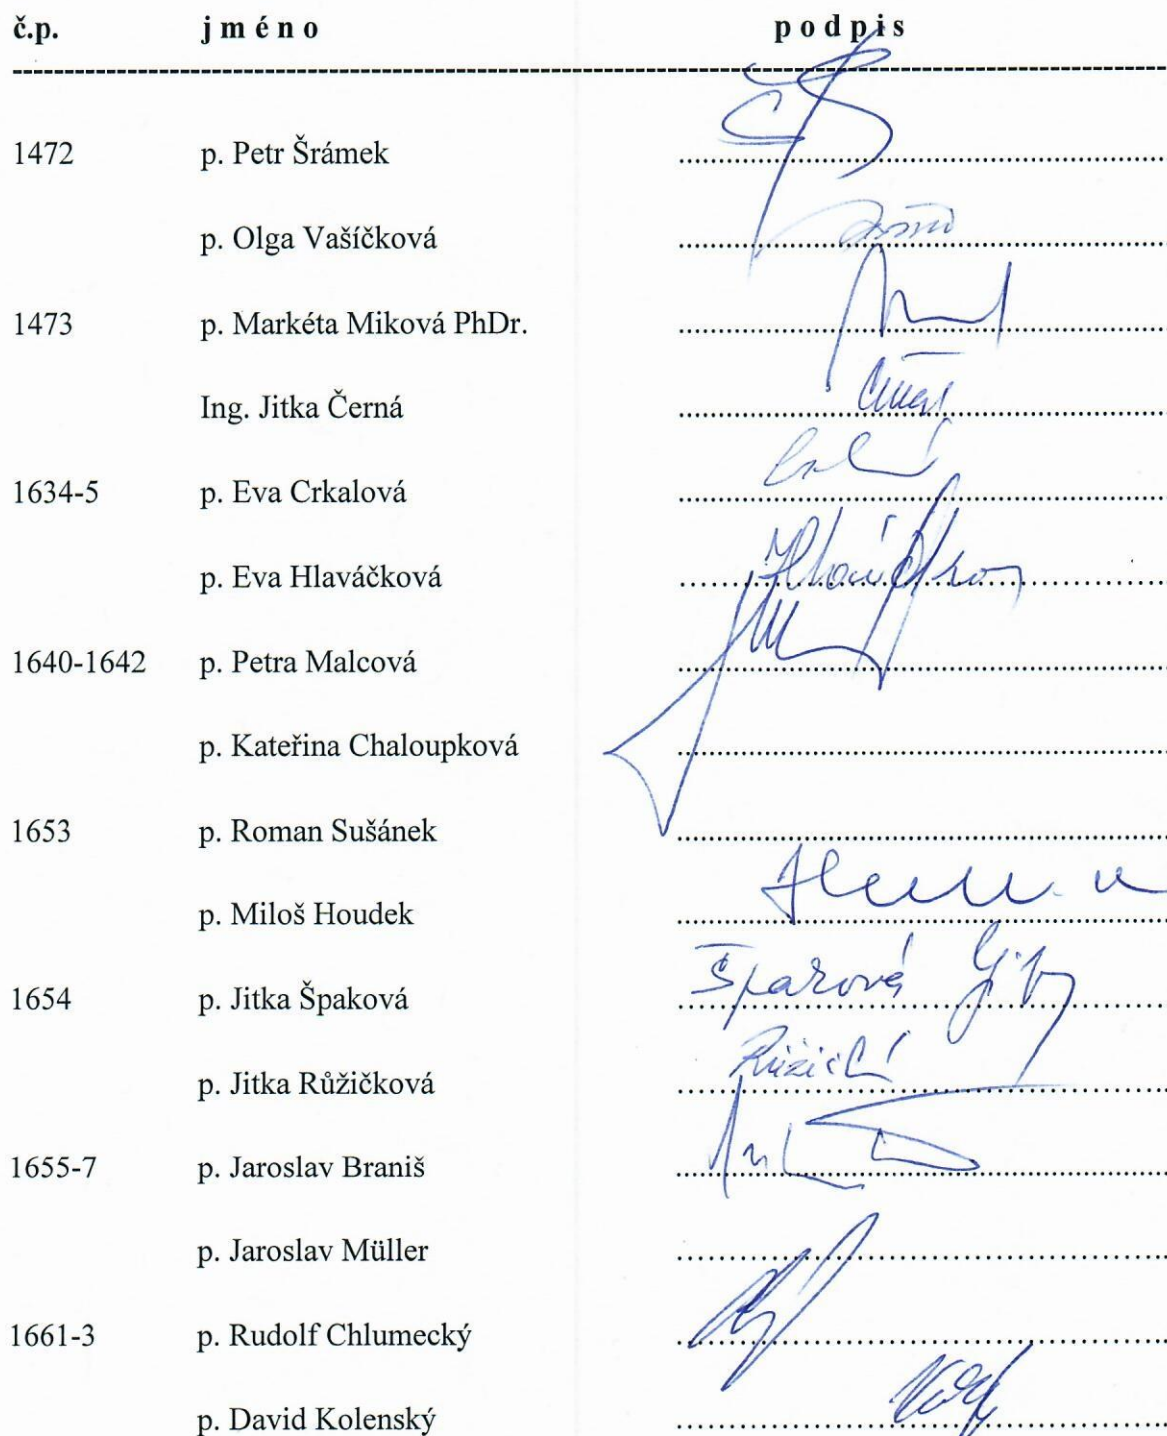 č.p. jméno podpis
1472 p. Petr Šrámek
p. Olga Vašíčková
1473 p. Markéta Miková PhDr.
Ing. Jitka Černá
1634-5 p. Eva Crkalová
p. Eva Hlaváčková
1640-1642 p. Petra Malcová
p. Kateřina Chaloupková
1653 p. Roman Sušánek
p. Miloš Houdek
1654 p. Jitka Špaková
p. Jitka Růžičková
1655-7 p. Jaroslav Braniš
p. Jaroslav Müller
1661-3 p. Rudolf Chlumecký
p. David Kolenský